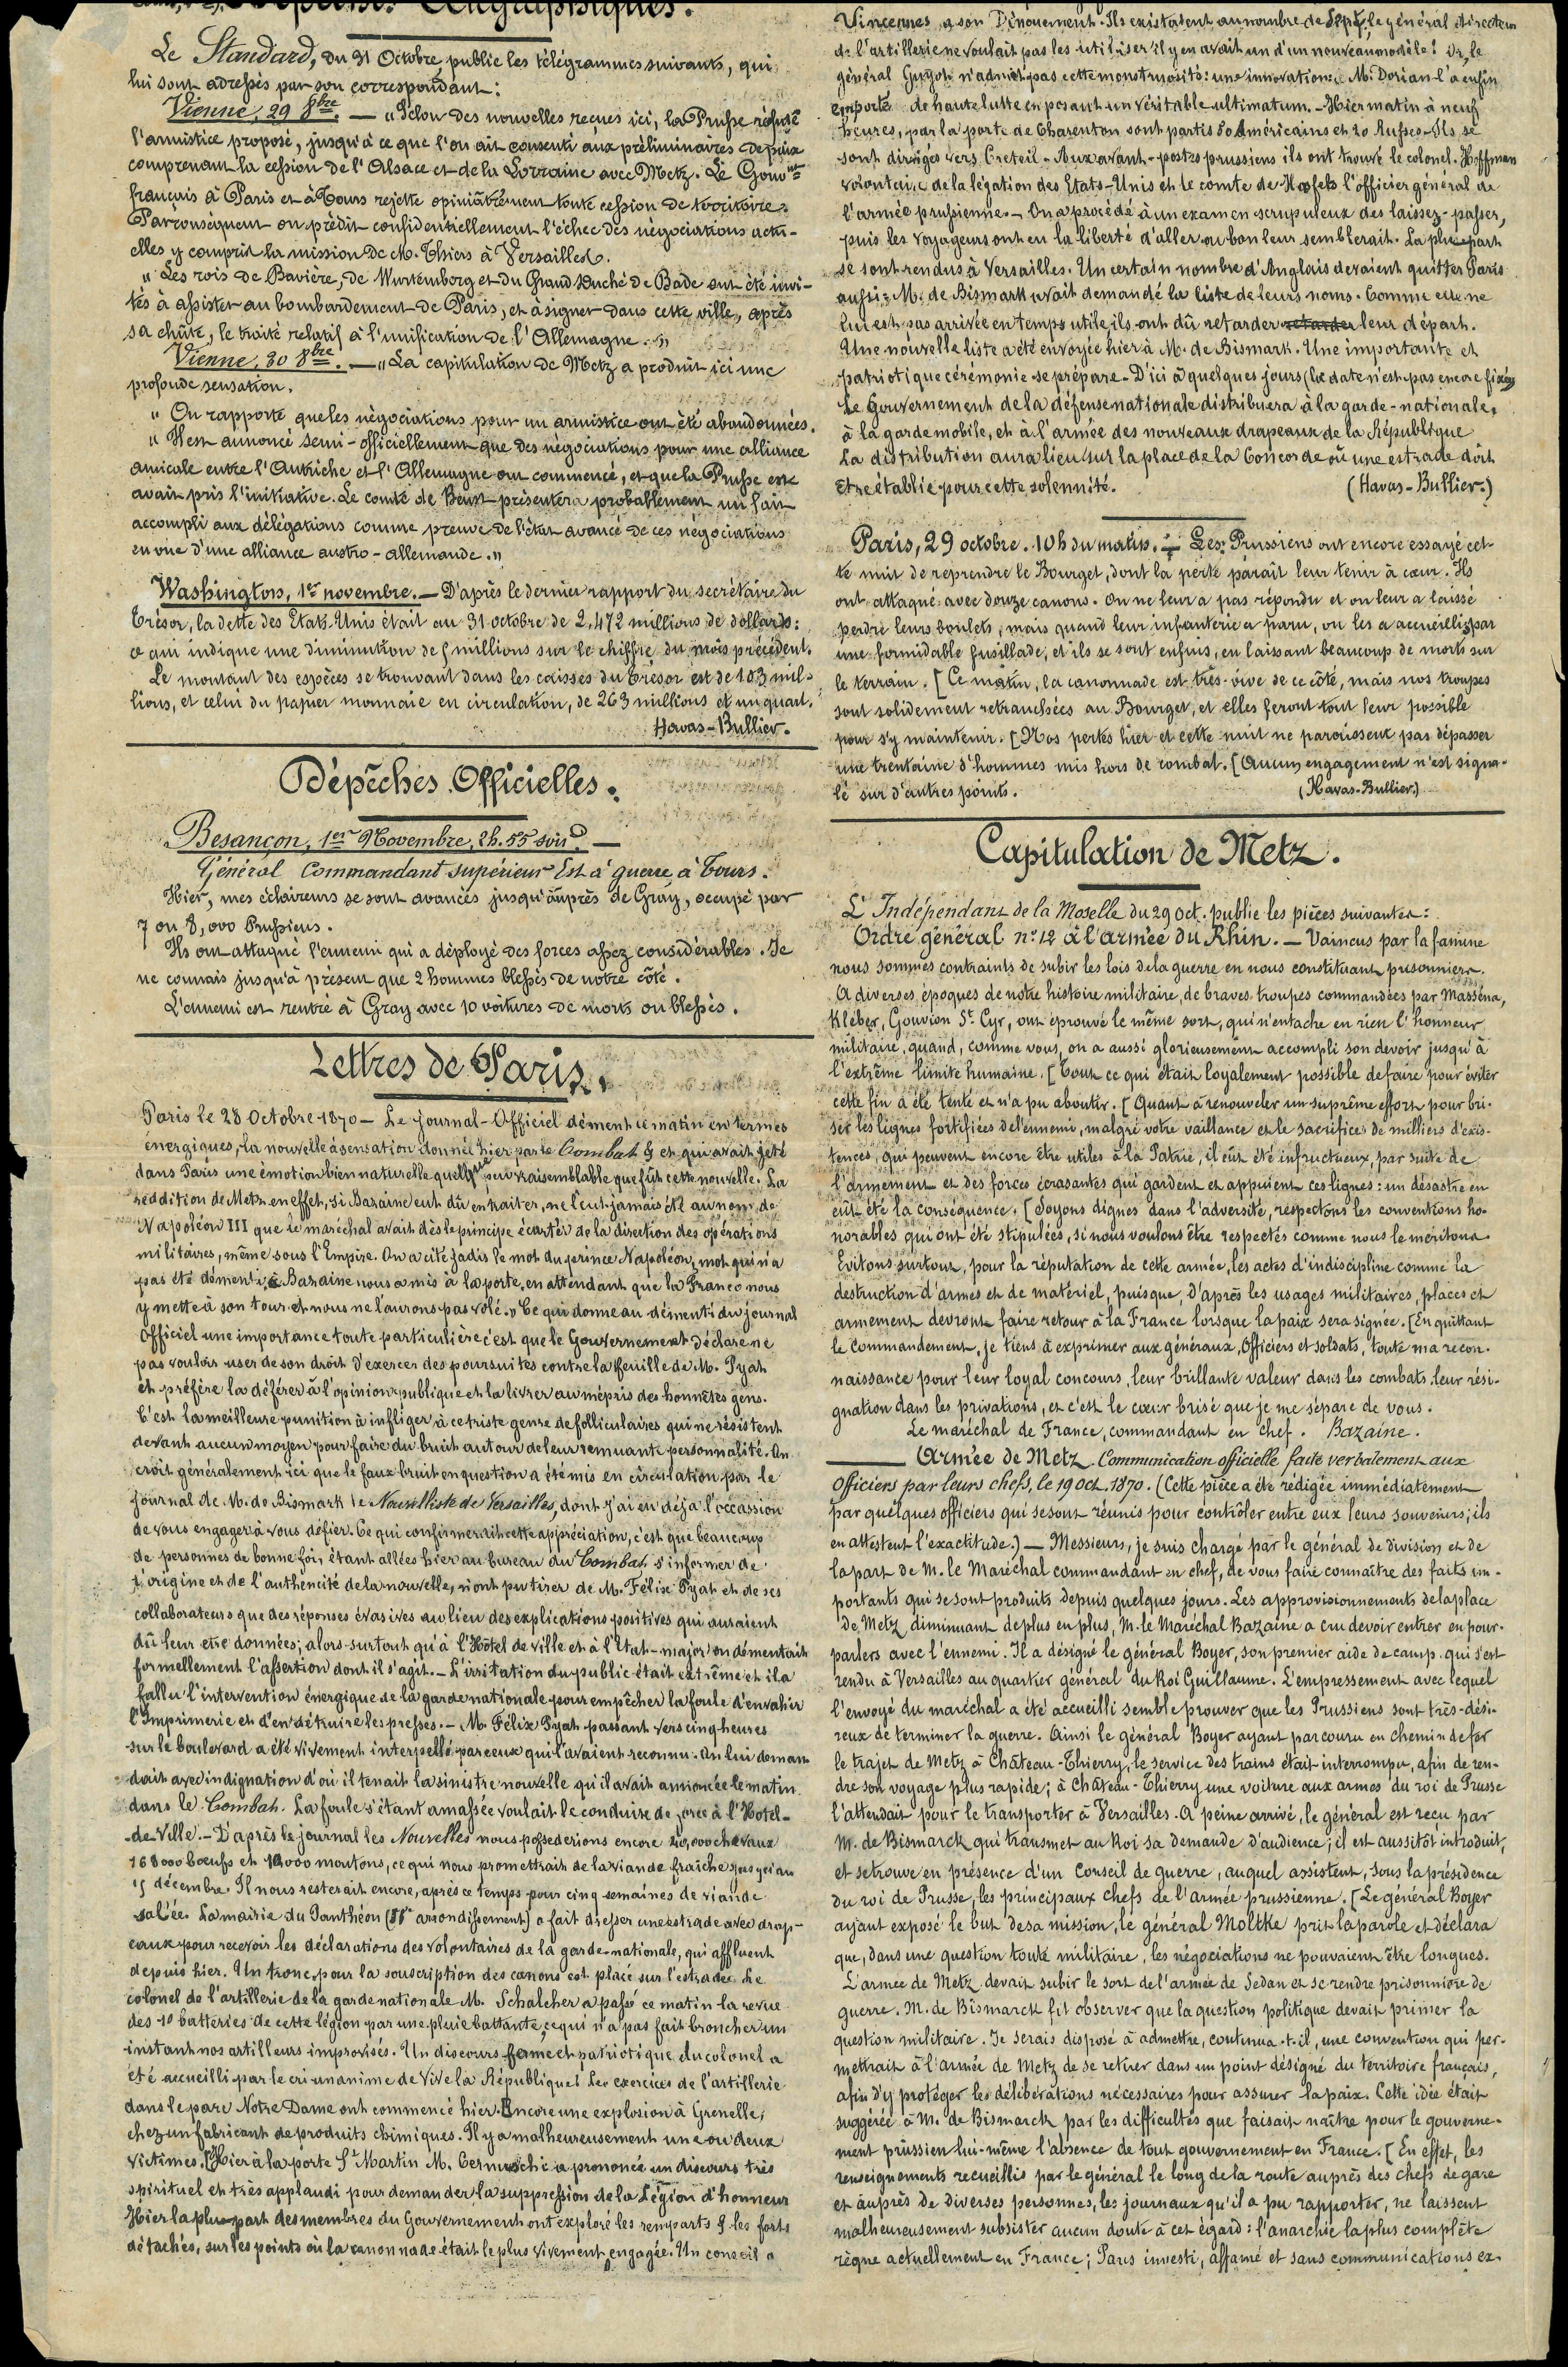 Dépêches Télégraphiques.
Le Standard, du 31 Octobre publie les télégrammes suivants, qui
lui sont adressés par son correspondant:
Vienne, 29 8bre. — "Selon des nouvelles reçues ici, la Prusse refuse
l'armistice proposé, jusqu'à ce que l'on ait consenti aux préliminaires de paix
comprenant la cession de l'Alsace et de la Lorraine avec Metz. Le Gouvnt
français à Paris et à Tours rejette opiniâtrement toute cession de territoire.
Par conséquent on prédit confidentiellement l'échec des négociations actu-
elles y compris la mission de M. Thiers à Versailles.
"Les rois de Bavière, de Wurtemberg et du Grand Duché de Bade ont été invi-
tés à assister au bombardement de Paris, et à signer dans cette ville, après
sa chûte, le traité relatif à l'unification de l'Allemagne."
Vienne, 30 8bre. — "La capitulation de Metz a produit ici une
profonde sensation.
"On rapporte que les négociations pour un armistice ont été abandonnées.
"Il est annoncé semi-officiellement que des négociations pour une alliance
amicale entre l'Autriche et l'Allemagne ont commencé, et que la Prusse est
avait pris l'initiative. Le comte de Beust présentera probablement un fait
accompli aux délégations comme preuve de l'état avancé de ces négociations
en vue d'une alliance austro-allemande."
Washington, 1er novembre. — D'après le dernier rapport du secrétaire du
Trésor, la dette des Etats-Unis était au 31 octobre de 2,472 millions de dollards:
ce qui indique une diminution de 5 millions sur le chiffre du mois précédent.
Le montant des espèces se trouvant dans les caisses du Trésor est de 103 mil-
lions, et celui du papier monnaie en circulation, de 263 millions et un quart.
Havas-Bullier.
Dépêches Officielles.
Besançon, 1er Novembre, 2h.55 soir. —
Général Commandant supérieur Est à guerre à Tours.
Hier, mes éclaireurs se sont avancés jusqu'auprès de Gray, occupé par
7 ou 8,000 Prussiens.
Ils ont attaqué l'ennemi qui a déployé des forces assez considérables. Je
ne connais jusqu'à présent que 2 hommes blessés de notre côté.
L'ennemi est rentré à Gray avec 10 voitures de morts ou blessés.
Lettres de Paris.
Paris le 28 Octobre 1870 — Le journal-Officiel dément ce matin en termes
énergiques, la nouvelle à sensation donnée hier par le Combat & et qui avait jeté
dans Paris une émotion bien naturelle quelque peu vraisemblable que fût cette nouvelle. La
reddition de Metz en effet, si Bazaine eut dû en traiter, ne l'eut jamais été au nom de
Napoléon III que le maréchal avait dès le principe écarter de la direction des opérations
militaires, même sous l'Empire. On a cité jadis le mot du prince Napoléon, mot qui n'a
pas été démenti "Bazaine nous a mis à la porte, en attendant que la France nous
y mette à son tour et nous ne l'aurons pas volé." Ce qui donne au démenti du journal
Officiel une importance toute particulière c'est que le Gouvernement déclare ne
pas vouloir user de son droit d'exercer des poursuites contre la feuille de M. Pyat
et préfère la déférer à l'opinion publique et la livrer au mépris des honnêtes gens.
C'est la meilleure punition à infliger à ce triste genre de folliculaires qui ne résistent
devant aucun moyen pour faire du bruit autour de leur remuante personnalité. On
croit généralement ici que le faux bruit en question a été mis en circulation par le
journal de M. de Bismark le Nouvelliste de Versailles, dont j'ai eu déjà l'occasion
de vous engager à vous défier. Ce qui confirmerait cette appréciation, c'est que beaucoup
de personnes de bonne foi, étant allées hier au bureau du Combat s'informer de
l'origine et de l'authencité de la nouvelle, n'ont pu tirer de M. Félix Pyat et de ses
collaborateurs que des réponses évasives au lieu des explications positives qui auraient
dû leur être données; alors surtout qu'à l'Hôtel de Ville et à l'Etat-major on démentait
formellement l'assertion dont il s'agit. — L'irritation du public était extrême et il a
fallu l'intervention énergique de la garde nationale pour empêcher la foule d'envahir
l'Imprimerie et d'en détruire les presses. — M. Félix Pyat passant vers cinq heures
sur le boulevard a été vivement interpellé par ceux qui l'avaient reconnu. On lui deman
dait avec indignation d'où il tenait la sinistre nouvelle qu'il avait annoncée le matin
dans le Combat. La foule s'étant amassée voulait le conduire de force à l'Hotel-
-de-Ville. — D'après le journal les Nouvelles nous possederions encore 40,000 chevaux
168000 bœufs et 10000 moutons, ce qui nous promettrait de la viande fraîche jusqu'au
15 décembre. Il nous resterait encore, après ce temps pour cinq semaines de viande
salée. La mairie du Panthéon ( arrondissement) a fait dresser une estrade avec drap-
eaux pour recevoir les déclarations des volontaires de la garde-nationale, qui affluent
depuis hier. Un tronc, pour la souscription des canons est placé sur l'estrade. Le
colonel de l'artillerie de la garde nationale M. Schalcher a passé ce matin la revue
des 10 batteries de cette légion par une pluie battante, ce qui n'a pas fait broncher un
instant nos artilleurs improvisés. Un discours ferme et patriotique du colonel a
été accueilli par le cri unanime de Vive la République! Les exercices de l'artillerie
dans le parc Notre Dame ont commencé hier. Encore une explosion à Grenelle,
chez un fabricant de produits chimiques. Il y a malheureusement une ou deux
victimes. [Hier à la porte St Martin M. Cernuschi a prononcé un discours très
spirituel et très applaudi pour demander la suppression de la Légion d'honneur
Hier la plupart des membres du Gouvernement ont exploré les remparts & les forts
détachés, sur les points où la canonnade était le plus vivement engagée. Un conseil a
Vincennes a son Dénouement. Ils existaient au nombre de sept, le général directeur
de l'artillerie ne voulait pas les utiliser il y en avait un d'un nouveau modèle! Or, le
général Guyot n'admet pas cette monstruosité: une innovation. M. Dorian l'a enfin
emporté de haute lutte en posant un véritable ultimatum. — Hier matin à neuf
heures, par la porte de Charenton sont partis 50 Américains et 20 Russes. Ils se
sont dirigés vers Creteil. — Aux avant-postes prussiens ils ont trouvé le colonel Hoffman
volontaire de la légation des Etats-Unis et le comte de Hasfels l'officier général de
l'armée prussienne. — On a procédé à un examen scrupuleux des laissez-passer,
puis les voyageurs ont eu la liberté d'aller ou bon leur semblerait. La plupart
se sont rendus à Versailles. Un certain nombre d'Anglais devaient quitter Paris
aussi; M. de Bismark avait demandé la liste de leurs noms. Comme elle ne
lui est pas arrivée en temps utile, ils ont dû retarder retarder leur départ.
Une nouvelle liste a été envoyée hier à M. de Bismark. Une importante et
patriotique cérémonie se prépare. D'ici à quelques jours (la date n'est pas encore fixée)
le Gouvernement de la défense nationale distribuera à la garde-nationale,
à la garde mobile, et à l'armée des nouveaux drapeaux de la République
La distribution aura lieu sur la place de la Concorde où une estrade doit
etre établie pour cette solennité. (Havas-Bullier.)
Paris, 29 octobre. 10h du matin. — Les Prussiens ont encore essayé cet-
te nuit de reprendre le Bourget, dont la perte paraît leur tenir à cœur. Ils
ont attaqué avec douze canons. On ne leur a pas répondu et on leur a laissé
perdre leurs boulets, mais quand leur infanterie a paru, on les a accueillis par
une formidable fusillade, et ils se sont enfuis, en laissant beaucoup de morts sur
le terrain. [Ce matin, la canonnade est très-vive de ce côté, mais nos troupes
sont solidement retranchées au Bourget, et elles feront tout leur possible
pour s'y maintenir. [Nos pertes hier et cette nuit ne paroissent pas dépasser
une trentaine d'hommes mis hors de combat. [Aucun engagement n'est signa-
lé sur d'autres points. (Havas-Bullier.)
Capitulation de Metz.
L'Indépendant de la Moselle du 29 oct. publie les pièces suivantes:
Ordre général n° 12 à l'armée du Rhin. — Vaincus par la famine
nous sommes contraints de subir les lois de la guerre en nous constituant prisonniers.
A diverses époques de notre histoire militaire, de braves troupes commandées par Masséna,
Kléber, Gouvion St. Cyr, ont éprouvé le même sort, qui n'entache en rien l'honneur
militaire, quand, comme vous, on a aussi glorieusement accompli son devoir jusqu'à
l'extrême limite humaine. [Tout ce qui était loyalement possible de faire pour éviter
cette fin a été tenté et n'a pu aboutir. [Quant à renouveler un suprême effort pour bri-
ser les lignes fortifiées de l'ennemi, malgré votre vaillance et le sacrifice de milliers d'exis-
tences, qui peuvent encore être utiles à la Patrie, il eût été infructueux, par suite de
l'armement et des forces écrasantes qui gardent et appuient ces lignes: un désastre en
eût été la conséquence. [Soyons dignes dans l'adversité, respectons les conventions ho-
norables qui ont été stipulées, si nous voulons être respectés comme nous le méritons.
Evitons surtout, pour la réputation de cette armée, les actes d'indiscipline comme la
destruction d'armes et de matériel, puisque, d'après les usages militaires, places et
armement devront faire retour à la France lorsque la paix sera signée. [En quittant
le commandement, je tiens à exprimer aux généraux, Officiers et soldats, toute ma recon-
naissance pour leur loyal concours, leur brillante valeur dans les combats, leur rési-
gnation dans les privations, et c'est le cœur brisé que je me sépare de vous.
Le maréchal de France, commandant en chef. Bazaine.
— Armée de Metz. Communication officielle faite verbalement aux
Officiers par leurs chefs, le 19 oct. 1870. (Cette pièce a été rédigée immédiatement
par quelques officiers qui se sont réunis pour contrôler entre eux leurs souvenirs; ils
en attestent l'exactitude.) — Messieurs, je suis chargé par le général de division et de
la part de M. le Maréchal commandant en chef, de vous faire connaître des faits im-
portants qui se sont produits depuis quelques jours. Les approvisionnements de la place
de Metz diminuant de plus en plus, M. le Maréchal Bazaine a cru devoir entrer en pour-
parlers avec l'ennemi. Il a désigné le général Boyer, son premier aide de camp, qui s'est
rendu à Versailles au quartier général du Roi Guillaume. L'empressement avec lequel
l'envoyé du maréchal a été accueilli semble prouver que les Prussiens sont très-dési-
reux de terminer la guerre. Ainsi le général Boyer ayant parcouru en chemin de fer
le trajet de Metz à Château-Thierry, le service des trains était interrompu, afin de ren-
dre son voyage plus rapide; à Château-Thierry une voiture aux armes du roi de Prusse
l'attendait pour le transporter à Versailles. A peine arrivé, le général est reçu par
M. de Bismarck qui transmet au Roi sa demande d'audience; il est aussitôt introduit,
et se trouve en présence d'un Conseil de guerre, auquel assistent, sous la présidence
du roi de Prusse, les principaux chefs de l'armée prussienne. [Le général Boyer
ayant exposé le but de sa mission, le général Moltke prit la parole et déclara
que, dans une question toute militaire, les négociations ne pouvaient être longues.
L'armée de Metz devait subir le sort de l'armée de Sedan et se rendre prisonnière de
guerre. M. de Bismarck fit observer que la question politique devait primer la
question militaire. Je serais disposé à admettre, continua-t-il, une convention qui per-
mettrait à l'armée de Metz de se retirer dans un point désigné du territoire français,
afin d'y protéger les délibérations nécessaires pour assurer la paix. Cette idée était
suggérée à M. de Bismarck par les difficultés que faisait naître pour le gouverne-
ment prussien lui-même l'absence de tout gouvernement en France. [En effet, les
renseignements recueillis par le général le long de la route auprès des chefs de gare
et auprès de diverses personnes, les journaux qu'il a pu rapporter, ne laissent
malheureusement subsister aucun doute à cet égard: l'anarchie la plus complète
règne actuellement en France; Paris investi, affamé et sans communications ex-